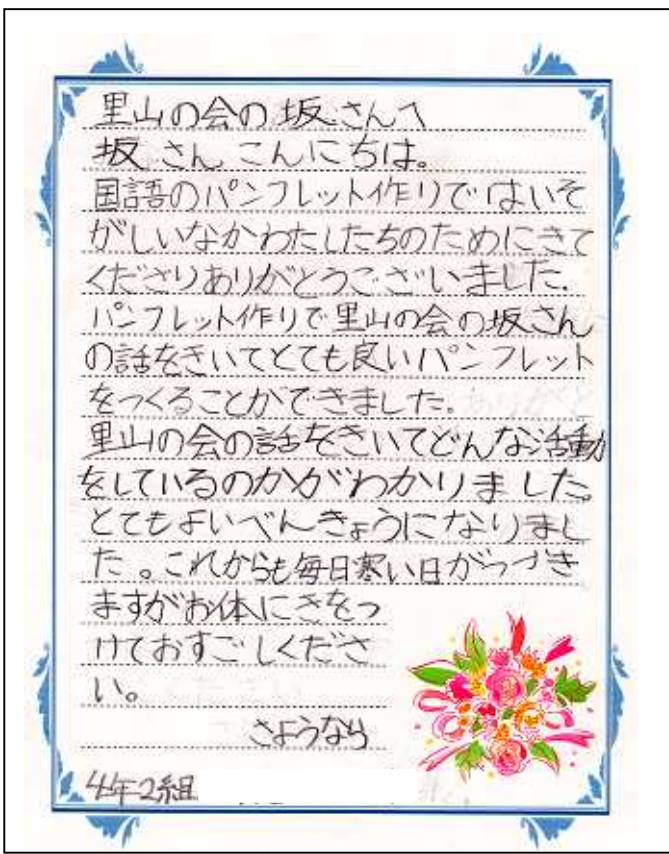 里山の会の坂さんへ
坂さんこんにちは。
国語のパンフレット作りではいそ
がしいなかわたしたちのためにきて
くださりありがとうございました.
パンフレット作りで里山の会の坂さん
の話をきいてとても良いパンフレット
をつくることができました。
里山の会の話をきいてどんな活動
をしているのかがわかりました。
とてもよいべんきょうになりまし
た。これからも毎日寒い日がつづき
ますがお体にきをつ
けておすごしくださ
い。
さようなら
4年2組